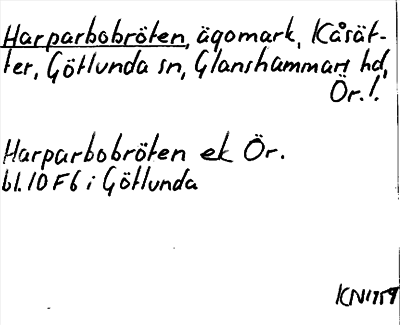 Harparbobröten, ägomark, Kåsät-
ter, Götlunda sn, Glanshammars hd,
Ör.!
Harparbobröten ek Ör.
bl. 10 F 6 i Götlunda